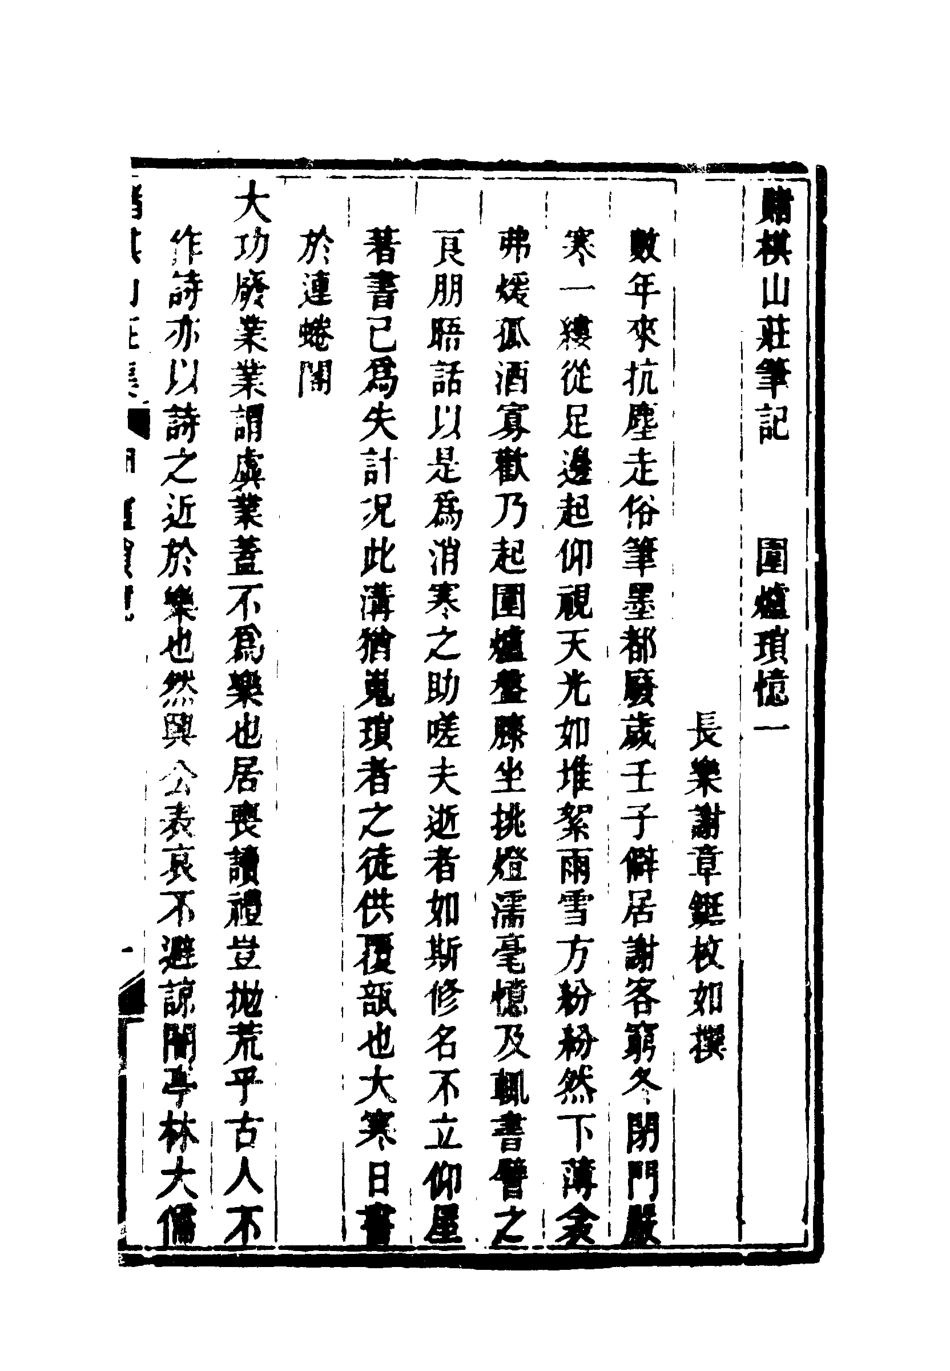 賭棋山莊筆記　圍爐瑣憶一
長樂謝章鋌枚如撰
數年來抗塵走俗筆墨都廢歲壬子僻居謝客窮冬閉門嚴
寒一縷從足邊起仰視天光如堆絮雨雪方紛紛然下薄衾
弗煖孤酒寡歡乃起圍爐盤膝坐挑燈濡毫憶及輒書譬之
良朋晤話以是爲消寒之助嗟夫逝者如斯修名不立仰屋
著書已爲失計况此溝猶嵬瑣者之徒供覆瓿也大寒日書
於連蜷閣
大功廢業業謂虡業蓋不爲樂也居喪讀禮豈拋荒乎古人不
作詩亦以詩之近於樂也然興公表哀不避諒闇亭林大儒
賭棋山莊集　圍爐瑣憶　一